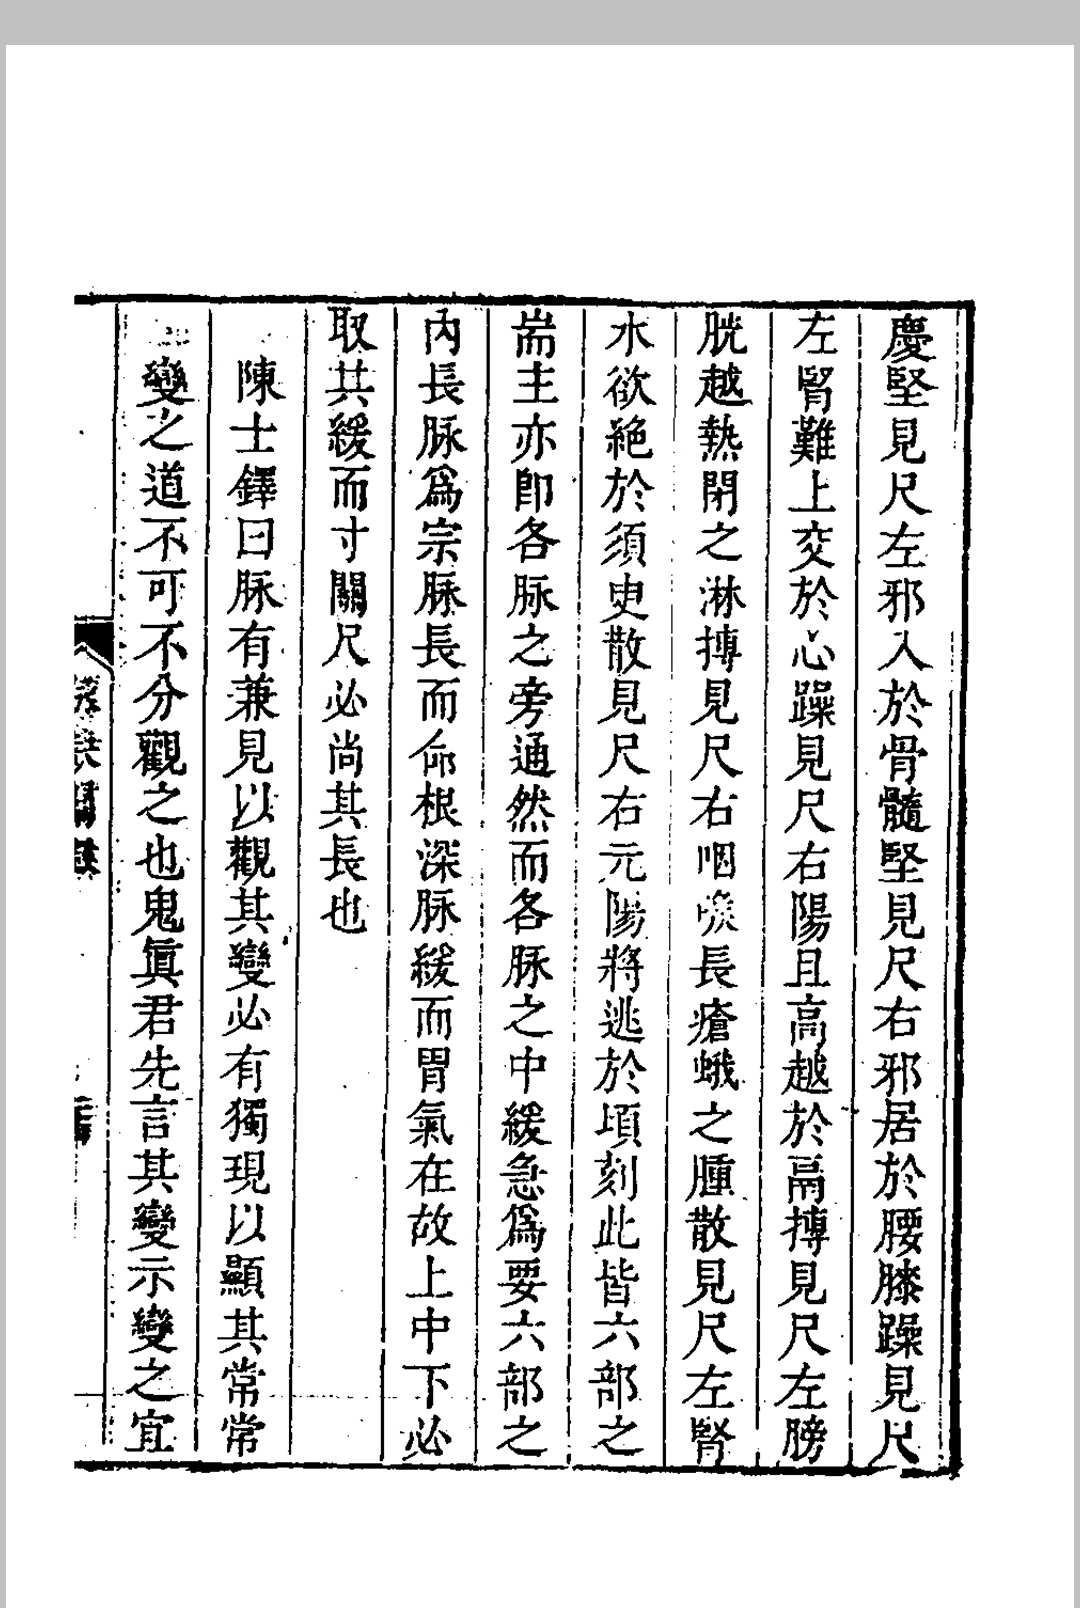 慶堅見尺左邪入於骨髓堅見尺右邪居於腰膝躁見尺
左腎難上交於心躁見尺右陽且高越於鬲摶見尺左膀
胱越熱閉之淋摶見尺右咽喉長瘡蛾之腫散見尺左腎
水欲絶於須臾散見尺右元陽將逃於頃刻此皆六部之
耑主亦卽各脉之旁通然而各脉之中緩急爲要六部之
内長脉爲宗脉長而命根深脉緩而胃氣在故上中下必
取其緩而寸關尺必尚其長也
陳士鐸曰脉有兼見以觀其變必有獨現以顯其常常
變之道不可不分觀之也鬼眞君先言其變示變之宜